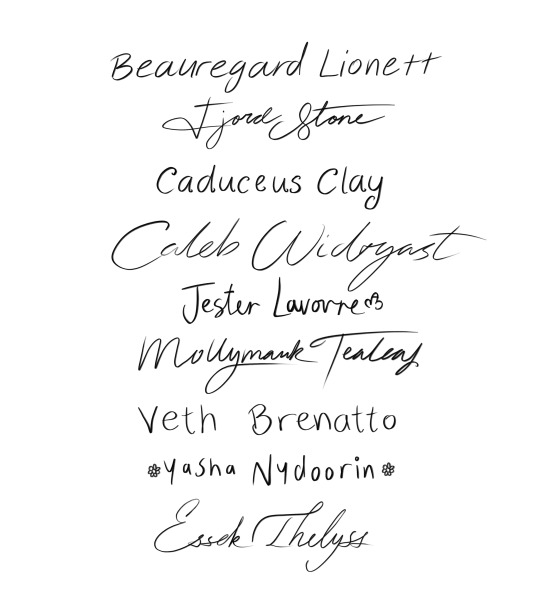 Beauregard Lionett
Fjord Stone
Caduceus Clay
Caleb Widogast
Jester Lavorre
Mollymauk Tealeaf
Veth Brenatto
Yasha Nydoorin
Essek Thelyss